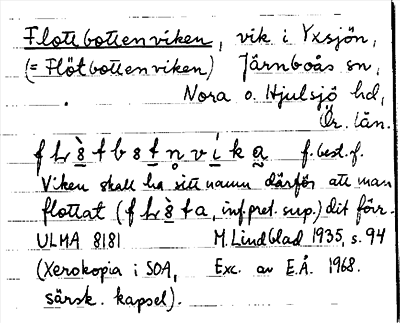 Flottbottenviken, vik i Yxsjön,
(= Flötbottenviken) Järnboås sn,
Nora o. Hjulsjö hd,
Ör. län.
f.best.f.
Viken skall ha sitt namn därför att man
flottat (        , inf. pret. sup.) dit förr.
ULMA 8181 M. Lindblad 1935, s. 94
(Xerokopia i SOA, Exc. av E.Å. 1968.
särsk. kapsel).